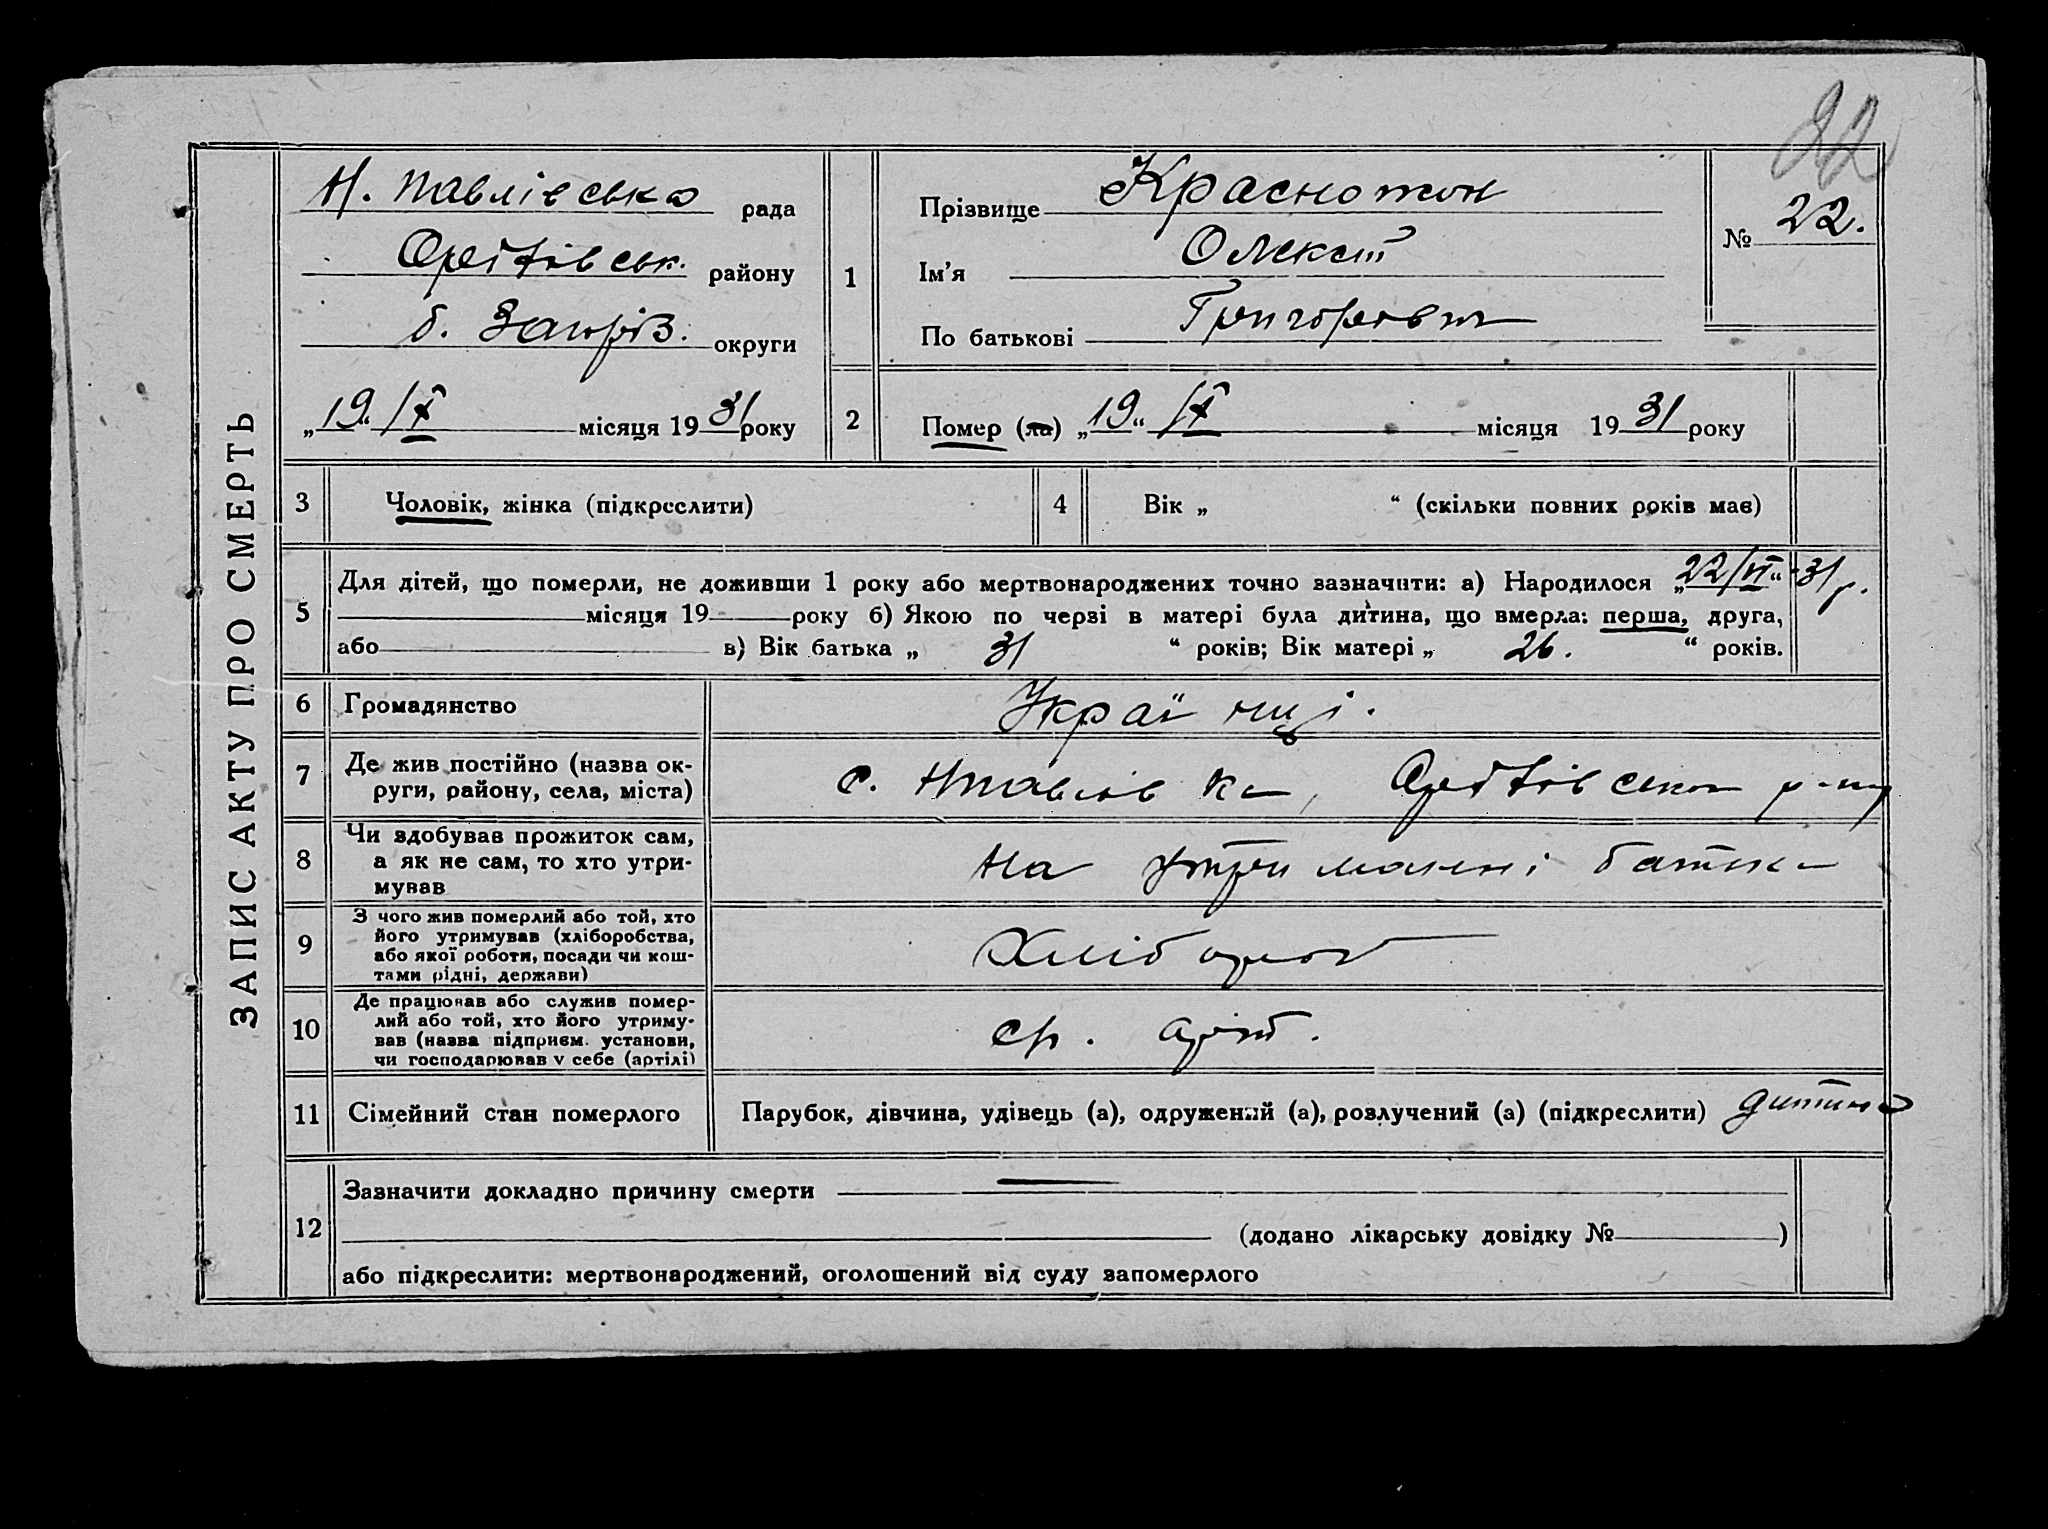 22
ЗАПИС АКТУ ПРО СМЕРТЬ
Н. Павлівська рада
Оріхівськ. району
б. Запоріз. округи
„19“ IX місяця 1931 року
1
Прізвище Краснотон
Ім'я Олексій
По батькові Григорович
№ 22.
2 Помер (ла) „19“ IX місяця 1931 року
3 Чоловік, жінка (підкреслити)
4 Вік „ “ (скільки повних років має)
5 Для дітей, що померли, не доживши 1 року або мертвонароджених точно зазначити: а) Народилося „22/VI“ 31 р.
місяця 19 року б) Якою по черзі в матері була дитина, що вмерла: перша, друга,
або в) Вік батька „ 31 “ років; Вік матері „ 26. “ років.
6 Громадянство Українці.
7 Де жив постійно (назва ок-
руги, району, села, міста)
с. Нпавлівка, Оріхівськ р-ну
8 Чи здобував прожиток сам,
а як не сам, то хто утри-
мував
на утриманні батька
9 З чого жив померлий або той, хто
його утримував (хліборобства,
або якої роботи, посади чи кош-
тами рідні, держави)
Хлібороб
10 Де працював або служив помер-
лий або той, хто його утриму-
вав (назва підприєм. установи,
чи господарював у себе (артілі)
11 Сімейний стан померлого Парубок, дівчина, удівець (а), одружений (а), розлучений (а) (підкреслити) дитина
12 Зазначити докладно причину смерти —
(додано лікарську довідку № )
або підкреслити: мертвонароджений, оголошений від суду запомерлого